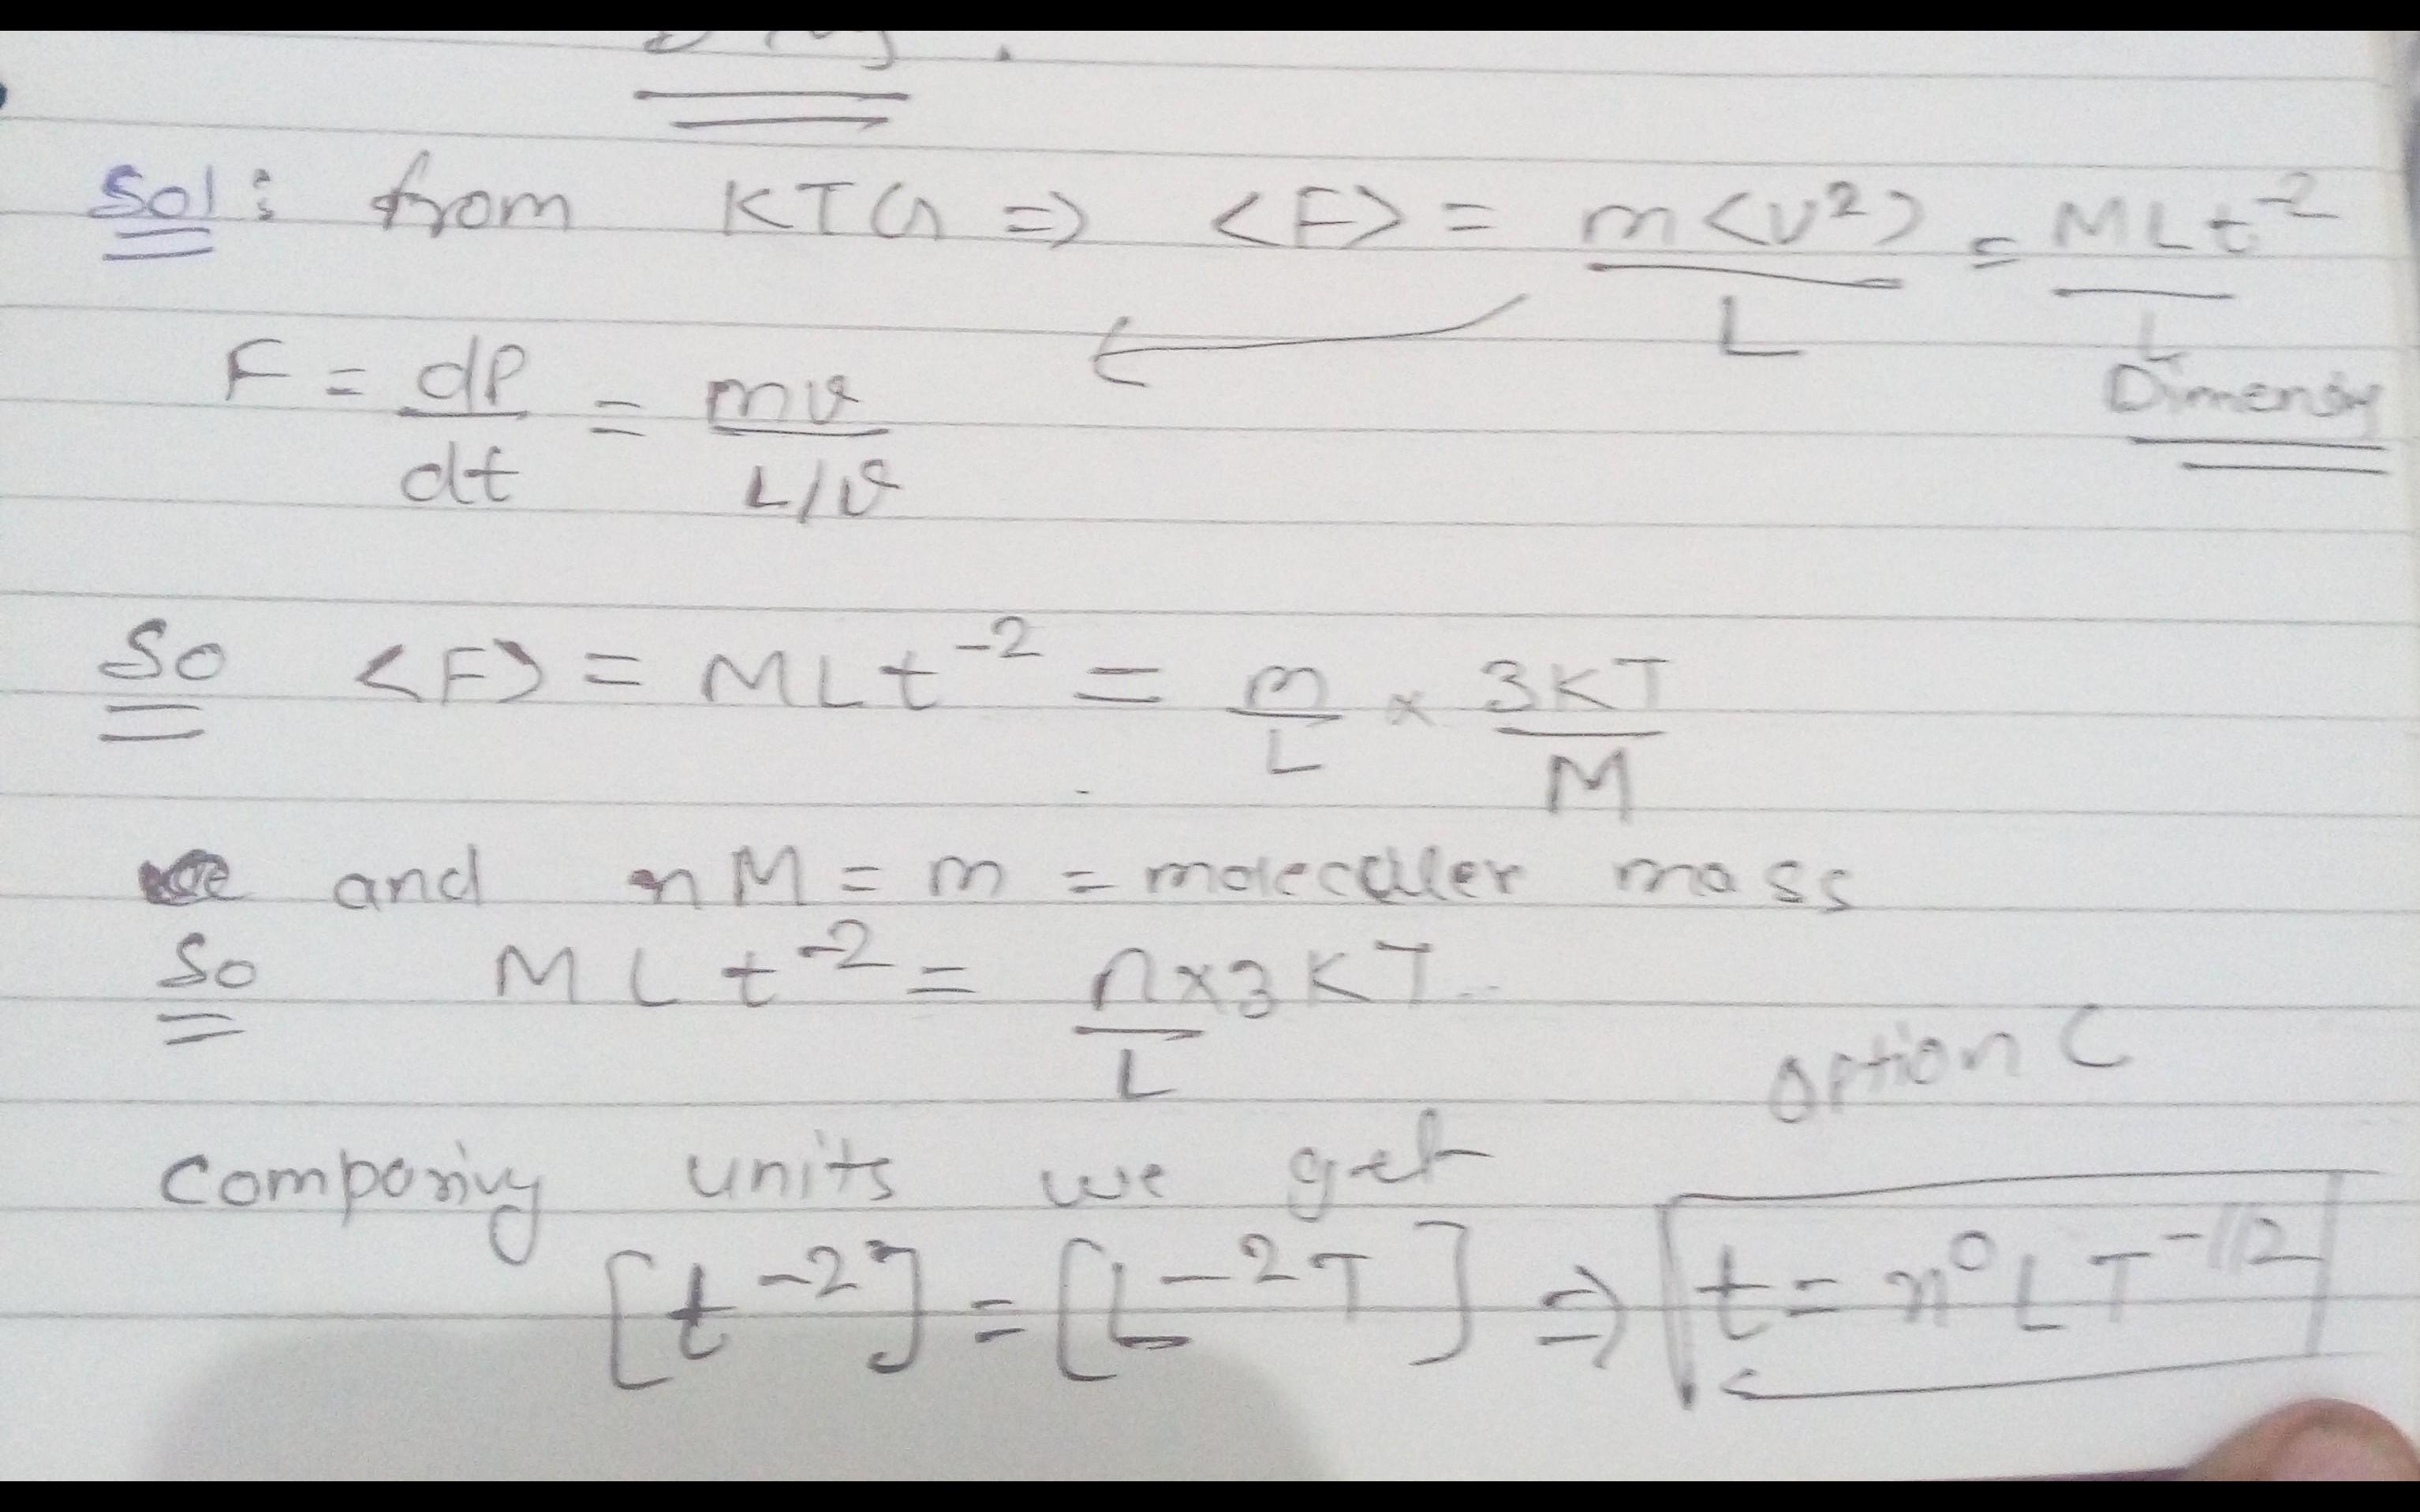 Sol: from KTG => <F> = m<v²>/L = MLt⁻²/L
Dimensiy
F = dP/dt = mv/L/v
So <F> = MLt⁻² = m/L × 3KT/M
and nM = m = moleculer mass
So MLt⁻² = n×3KT/L
option C
Compariy units we get
[t⁻²] = [L⁻²T] => t = n⁰LT⁻¹/²